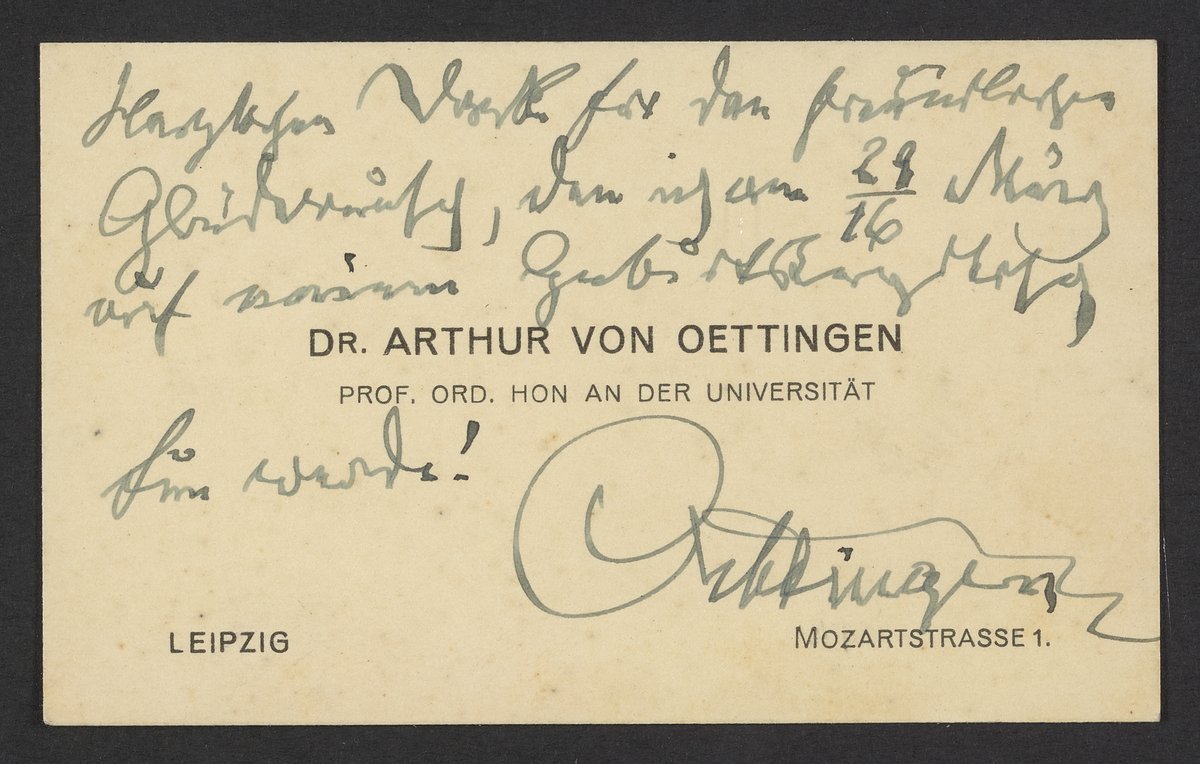 Herzlichen Dank für den freundlichen
Glückwunsch, den ich am 28/16 März
auf meinem Geburtstagstisch
DR. ARTHUR VON OETTINGEN
PROF. ORD. HON AN DER UNIVERSITÄT
werde!
Oettingen
LEIPZIG
MOZARTSTRASSE 1.